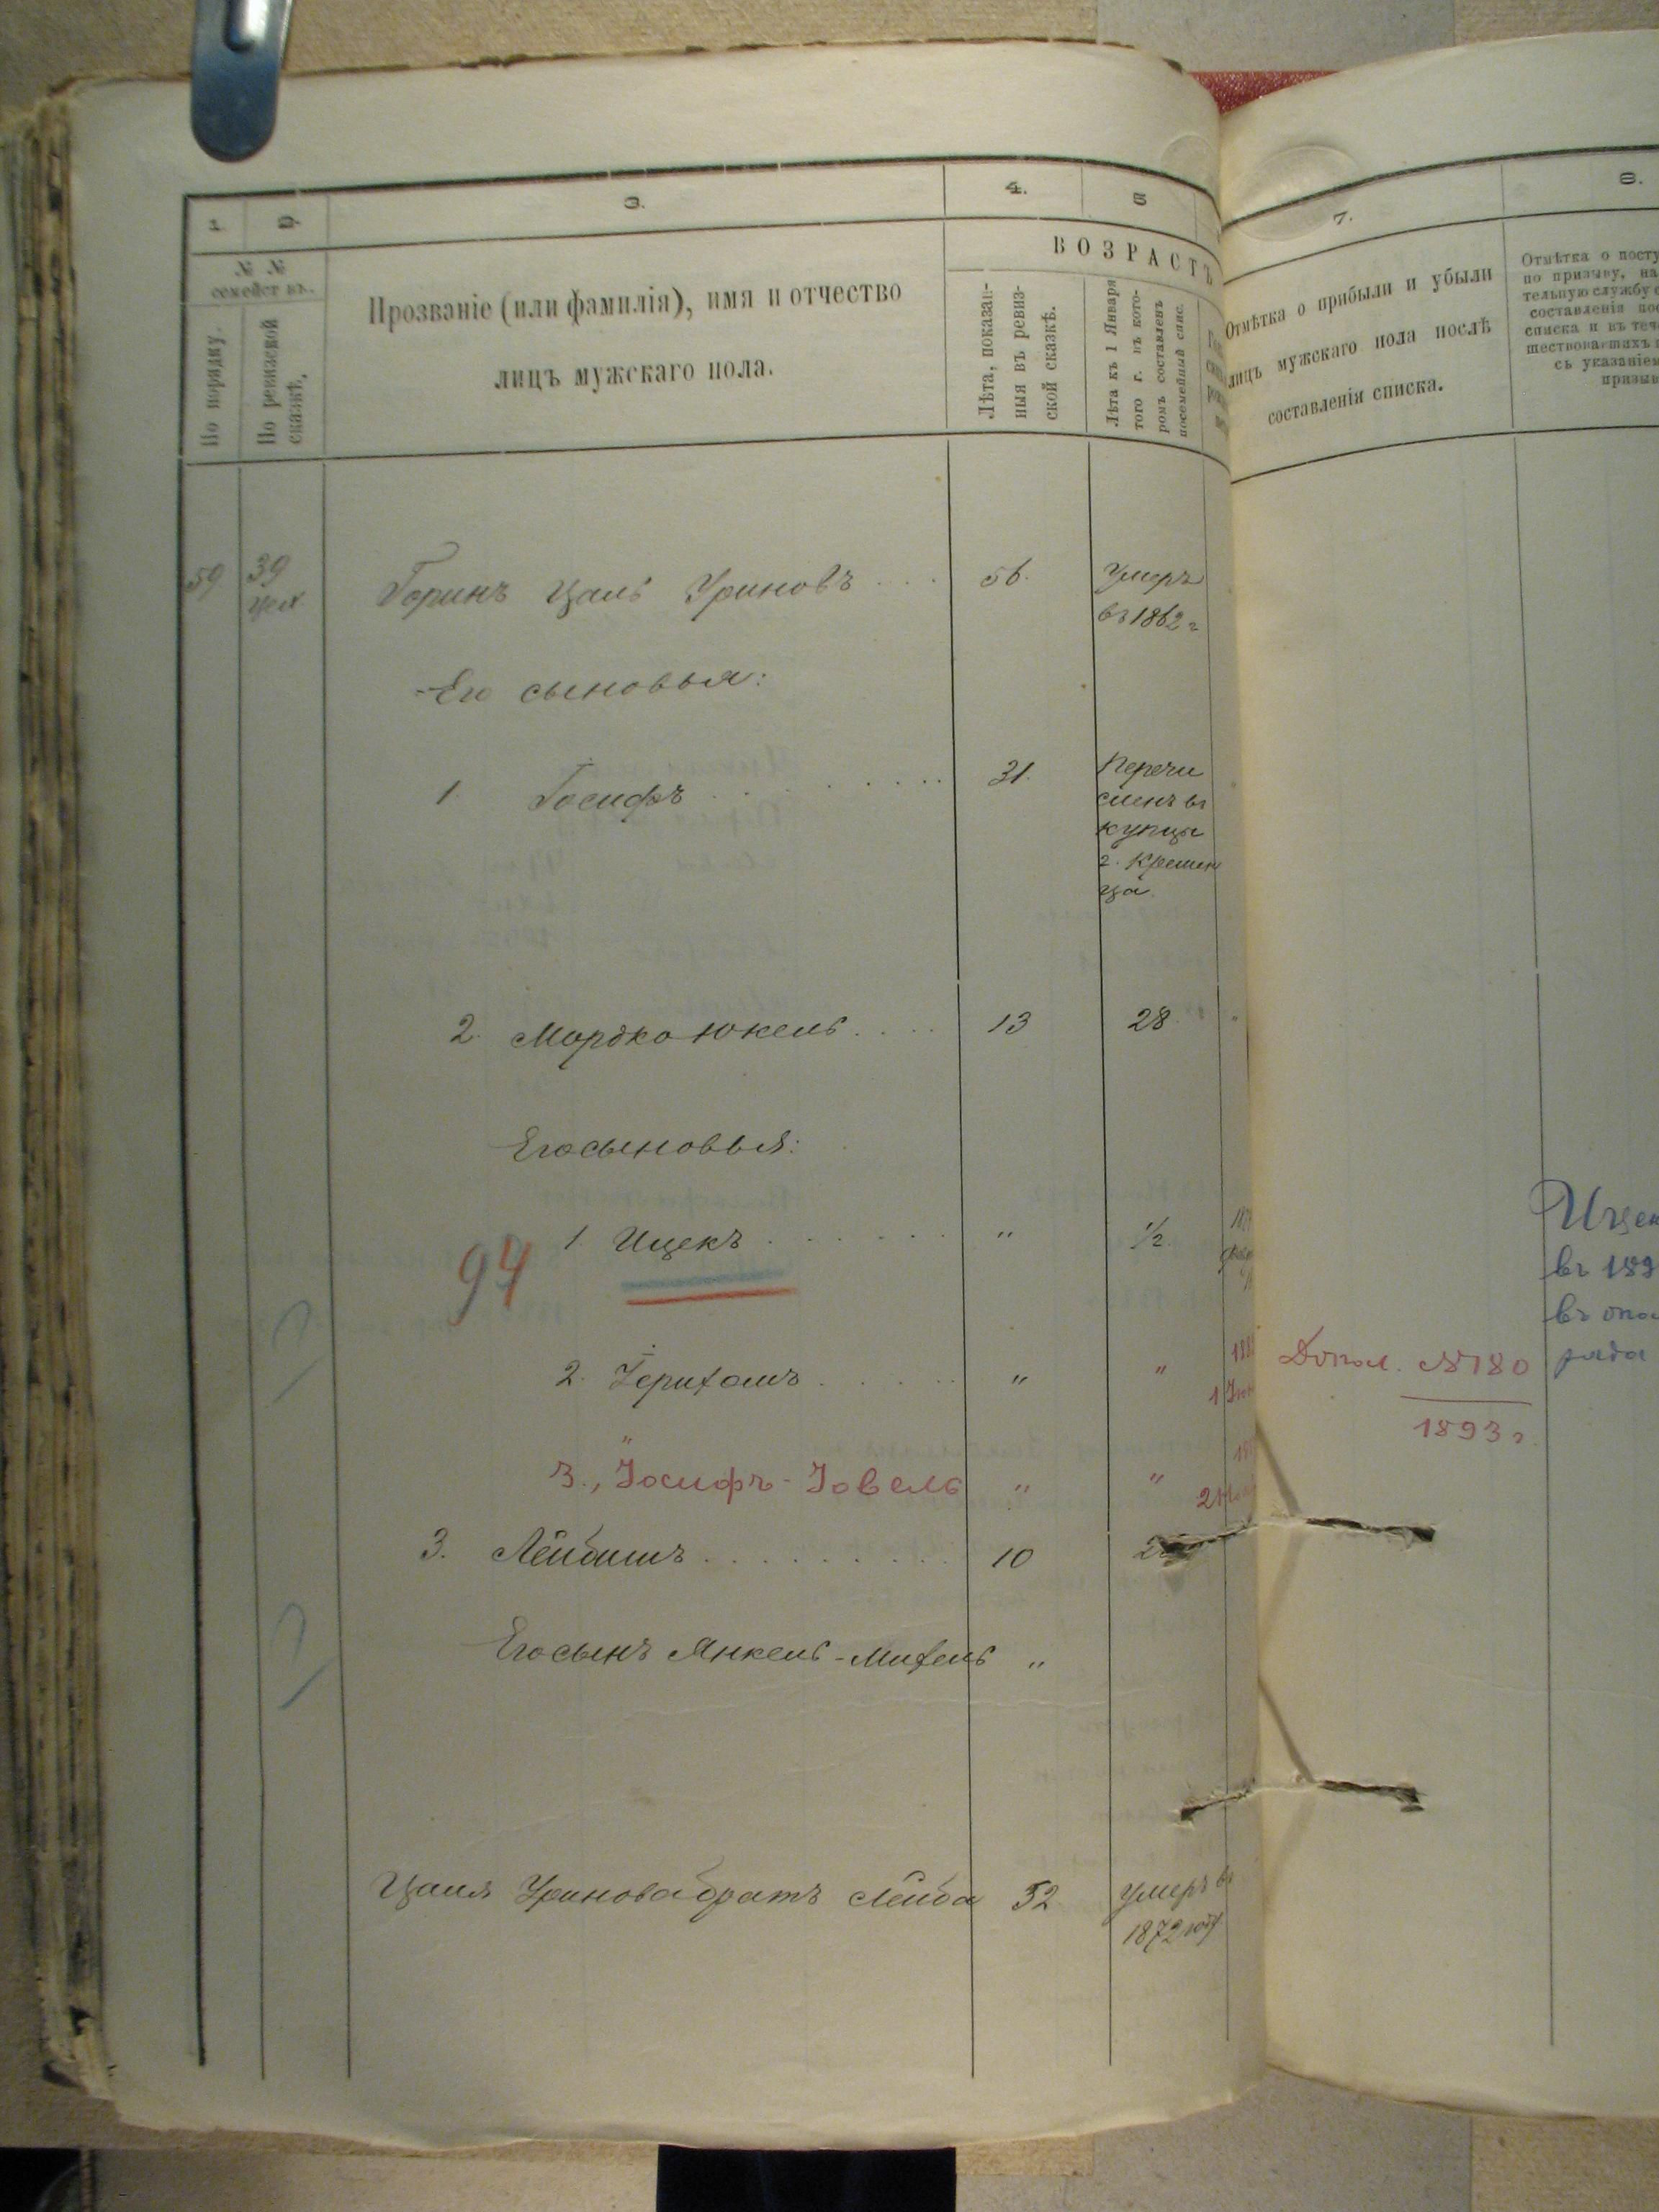 1. 2. 3. 4. 5 7. 8.
№ № семействъ.
По порядку.
По ревизской сказкѣ.
Прозваніе (или фамилія), имя и отчество
лицъ мужскаго пола.
ВОЗРАСТЪ
Лѣта, показан-
ныя въ ревиз-
ской сказкѣ.
Лѣта къ 1 Января
того г. въ кото-
ромъ составленъ
посемейный спис.
Отмѣтка о прибыли и убыли
лицъ мужскаго пола послѣ
составленія списка.
Отмѣтка о посту
по призыву, на
тельную службу
составленія по
списка и въ теч
шествовавшихъ
съ указаніем
призыв
59 39 Горинъ Цаль Уриновъ 56. Умеръ
въ 1862 г
Его сыновья:
1. Іосифъ 31. Перечи
сленъ въ
купцы
г. Кремен
ца.
2. Мордко Юкель 13 28 "
Его сыновья:
94 1. Ицекъ " 1/2
Ицек
въ 189
въ опол
ряда
2. Іерихомъ " "
1 Іюн
Допол. №180
1893 г
3., Іосифъ-Іовель " "
3. Лейбишъ 10
Его сынъ Янкель-Михель "
Цаля Уринова братъ Лейба 52 Умеръ въ
1872 году